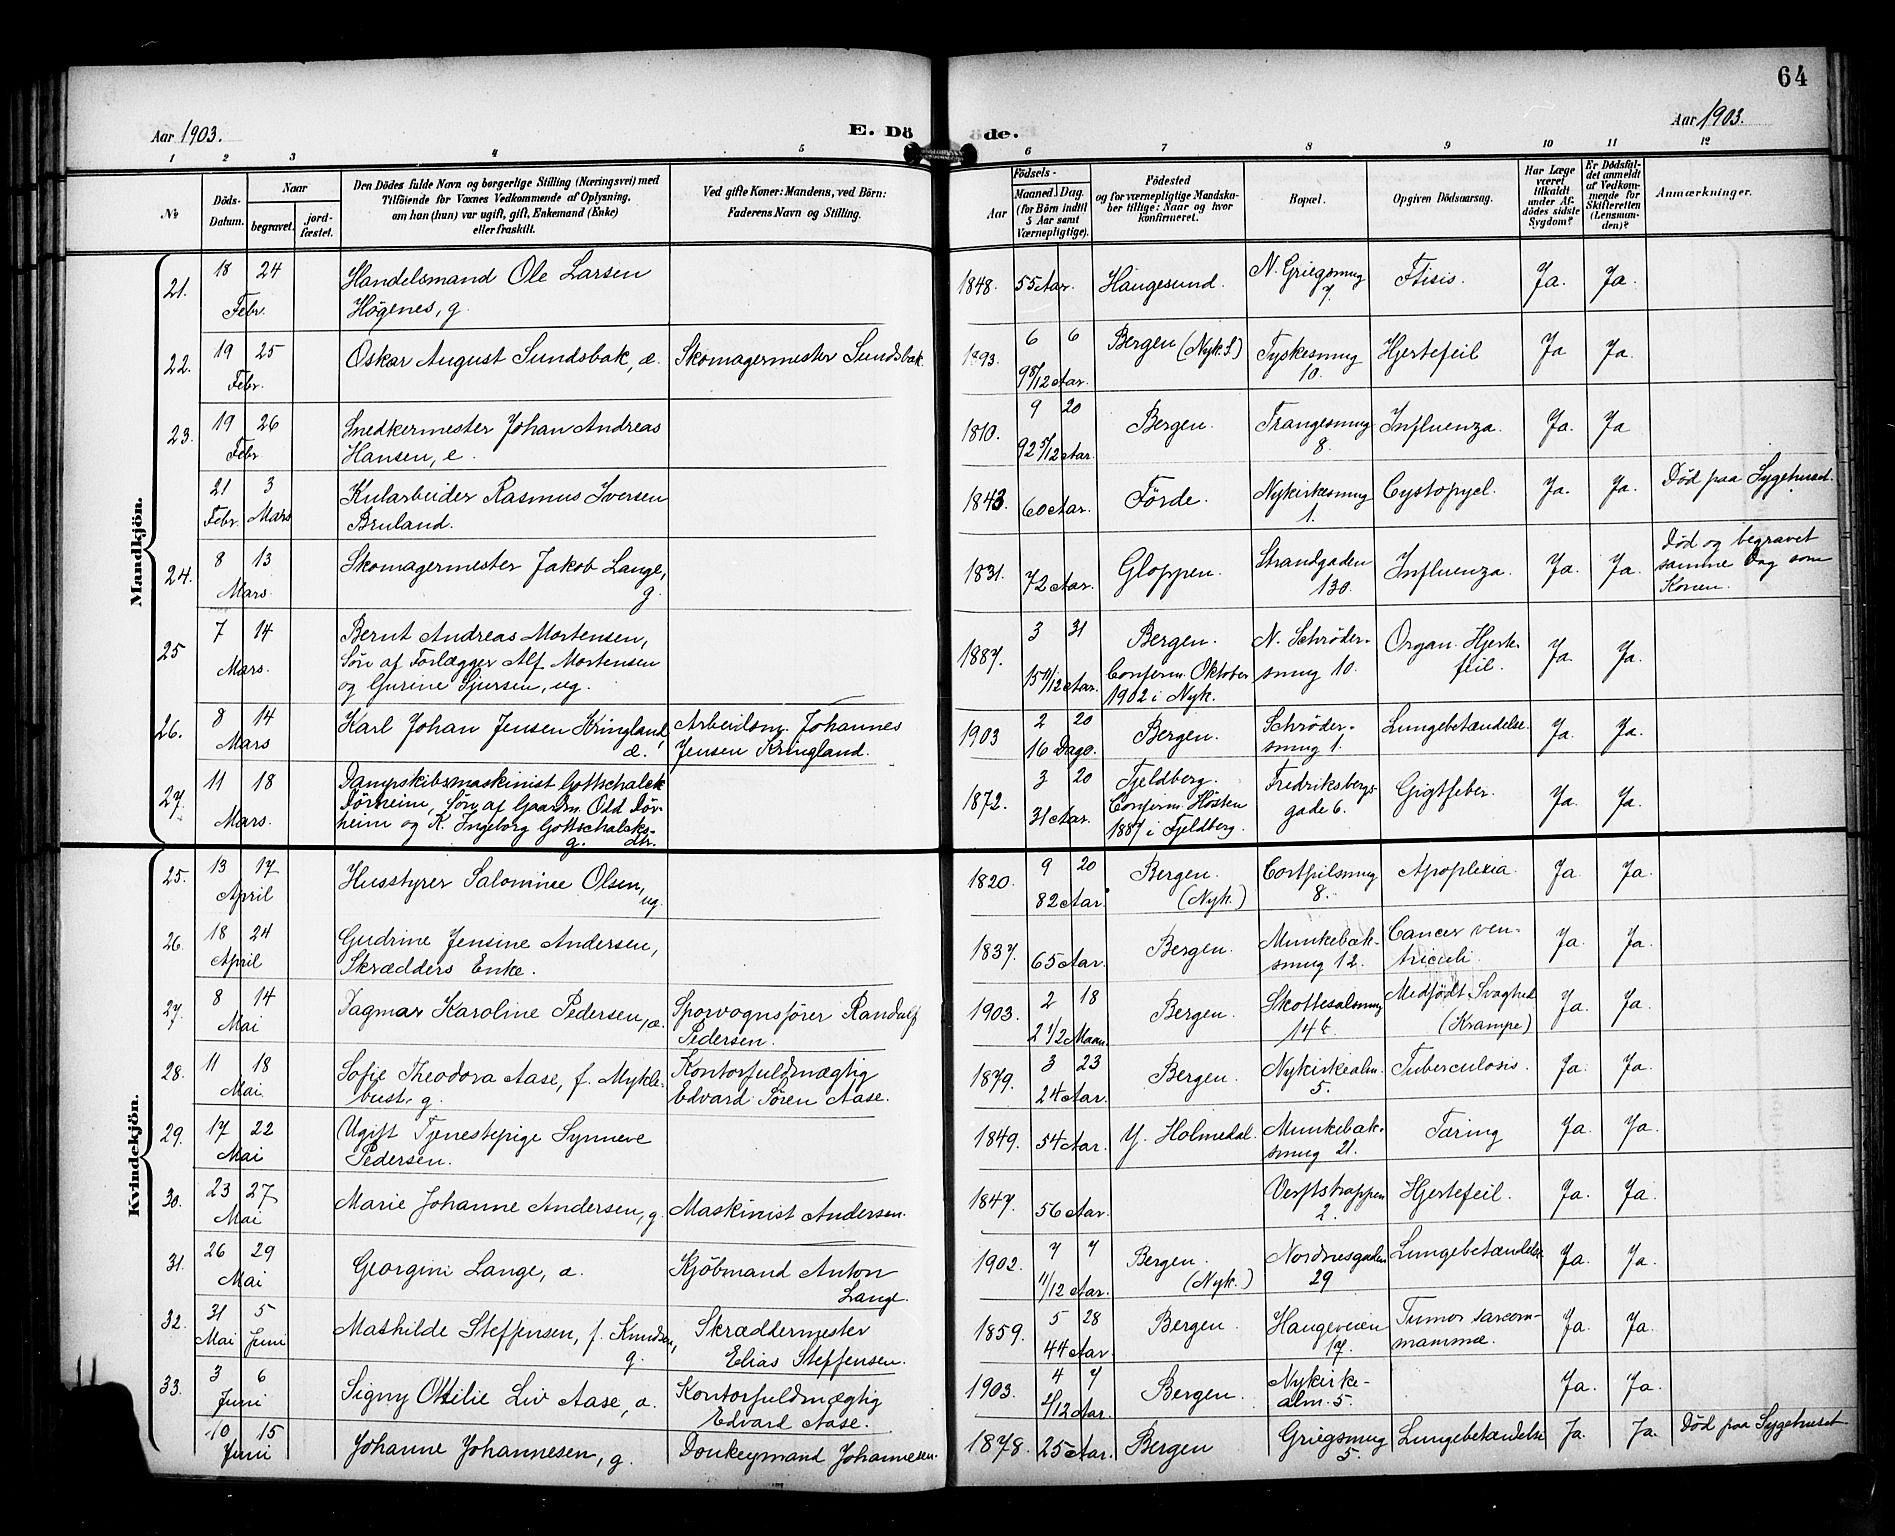 64
Aar 1903.
E. Döde.
Aar 1903.
1 2 3 4 5 6 7 8 9 10 11 12
No
Döds-Datum.
Naar
begravet.
jord-fæstet.
Den Dödes fulde Navn og borgerlige Stilling (Næringsvei) med
Tilföiende for Voxnes Vedkommende af Oplysning,
om han (hun) var ugift, gift, Enkemand (Enke)
eller fraskilt.
Ved gifte Koner: Mandens, ved Börn:
Faderens Navn og Stilling.
Födsels-
Aar
Maaned. Dag.
(for Börn indtil
5 Aar samt
Værnepligtige).
Födested
og for værnepligtige Mandska-
ber tillige: Naar og hvor
konfirmeret.
Bopæl.
Opgiven Dödsaarsag.
Har Læge
været
tilkaldt
under Af-
dödes sidste
Sygdom?
Er Dödsfal-
det anmeldt
af Vedkom-
mende for
Skifteretten
(Lensman-
den)?
Anmærkninger.
Mandkjön.
21. 18 24 Febr. Handelsmand Ole Larsen
Høgenes, g. 1848. 55 Aar. Haugesund. N. Griegsmug
7. Ftisis. Ja. Ja.
22. 19 25 Febr. Oskar August Sundsbak, æ. Skomagermester Sundsbak 1893. 6 6
9 8/12 Aar. Bergen (Nyk. S.) Tyskesmug
10. Hjertefeil Ja Ja.
23. 19 26 Febr Snedkermester Johan Andreas
Hansen, e. 1810. 9 20
92 5/12 Aar. Bergen. Trangesmug
8. Influenza. Ja. Ja
21 Febr. 3 Mars Kularbeider Rasmus Iversen
Bruland. 1843. 60 Aar. Förde. Nykirkesmug
1. Cystopyel. Ja. Ja. Död paa Sygehuset.
24. 8 13 Mars. Skomagermester Jakob Lange,
g. 1831. 72 Aar. Gloppen. Strandgaden
130. Influenza. Ja. Ja. Död og begravet
samme Dag som
Konen.
25 7 14 Mars. Bernt Andreas Mortensen,
Søn af Forlægger Alf Mortensen
og Gurine Sjursen, ug. 1887. 3 31
15 11/12 Aar. Bergen.
Confirm. Oktober
1902 i Nyk. N. Schrøder-
smug 10. Organ. Hjerte-
feil. Ja. Ja.
26. 8 14 Mars Karl Johan Jensen Kringland,
æ. Arbeidsm. Johannes
Jensen Kringland. 1903 2 20
16 Dage. Bergen. Schrøder-
smug 1. Lungebetændelse. Ja. Ja.
27. 11 18 Mars. Dampskibsmaskinist Gottschalck
Dörheim, Søn af Gaardm. Old Dör-
heim og K. Ingeborg Gottschalcks-
g. dtr. 1872. 3 20
31 Aar. Fjeldberg.
Confirm. Hösten
1887 i Fjeldberg. Fredriksbergs-
gade 6. Gigtfeber. Ja. Ja.
Kvindekjön.
25. 13 17 April Husstyrer Salominee Olsen,
ug. 1820. 9 20
82 Aar. Bergen.
(Nyk.) Cortpilsmug
8. Apoplexia. Ja. Ja.
26. 18 24 April Gudrine Jensine Andersen,
Skrædders Enke. 1837. 65 Aar. Bergen. Munkebæk-
smug 12. Cancer ven-
triculi. Ja. Ja.
27. 8 14 Mai Dagmar Karoline Pedersen, æ. Sporvognsfører Randulf
Pedersen. 1903. 2 18
2 1/2 Maan. Bergen. Skottesalsmug
14 b. Medfödt Svaghed
(Krampe) Ja. Ja.
28. 11 18 Mai. Sofie Theodora Aase, f. Mykle-
bust, g. Kontorfuldmægtig
Edvard Sören Aase. 1879. 3 23
24 Aar. Bergen. Nykirkealm.
5. Tuberculosis. Ja. Ja.
29. 17 22 Mai Ugift Tjenestepige Synneve
Pedersen. 1849. 54 Aar. Y. Holmedal. Munkebæk-
smug 21. Tæring Ja. Ja.
30. 23 27 Mai Marie Johanne Andersen, g. Maskinist Andersen. 1847. 56 Aar. Verftstrappen
2. Hjertefeil. Ja. Ja.
31. 26 29 Mai Georgine Lange, æ. Kjöbmand Anton
Lange. 1902. 7 7
11/12 Aar. Bergen.
(Nyk.) Nordnesgaden
29 Lungebetændelse Ja. Ja.
32. 31 Mai 5 Juni Mathilde Steffensen, f. Knudsen,
g. Skræddermester
Elias Steffensen. 1859. 5 28
44 Aar. Bergen. Haugeveien
17. Tumor sarcom-
mammæ. Ja. Ja.
33. 3 6 Juni Signy Ottilie Liv Aase, æ. Kontorfuldmægtig
Edvard Aase. 1903. 4 7
2/12 Aar. Bergen. Nykirke-
alm. 5. Ja. Ja.
10 15 Juni Johanne Johannesen, g. Donkeymand Johannesen. 1878. 25 Aar. Bergen Griegsmug
5. Lungebetændelse Ja. Ja. Död paa Sygehuset